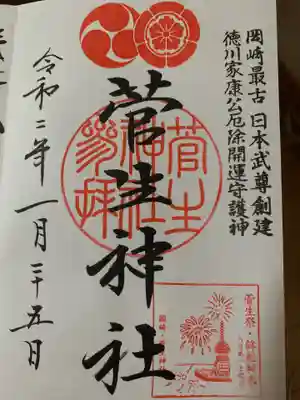 岡崎最古 日本武尊創建
徳川家康公厄除開運守護神
菅生神社
菅生神社参拝
令和二年一月二十五日
菅生祭・鉾船神事